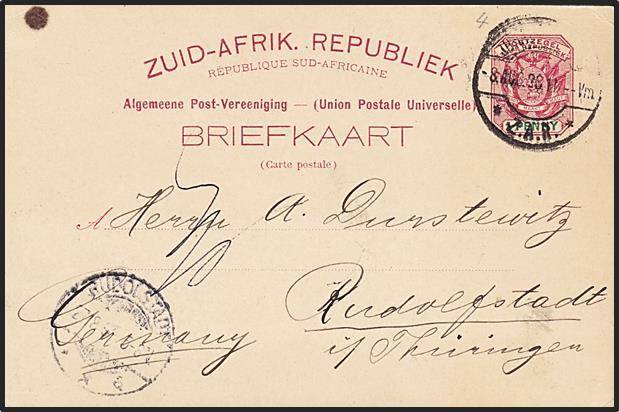 4
ZUID-AFRIK. REPUBLIEK
RÉPUBLIQUE SUD-AFRICAINE
Algemeene Post-Vereeniging — (Union Postale Universelle)
BRIEFKAART
(Carte postale)
POSTZEGEL
PENNY
Z.A.R.
A Herrn A. Durstewitz
Rudolfstadt
i/ Thüringen
Germany
RUDOLSTADT